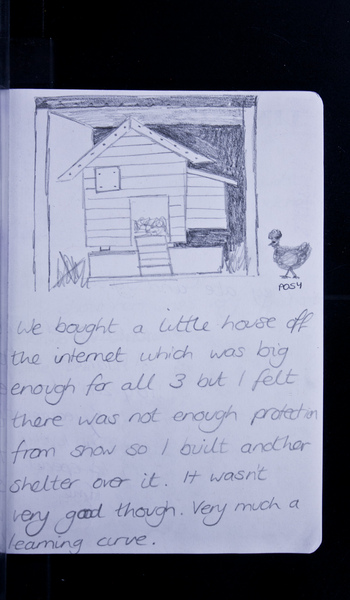 POSY
We bought a little house off
the internet which was big
enough for all 3 but I felt
there was not enough protection
from snow so I built another
shelter over it. It wasn't
very good though. Very much a
learning curve.